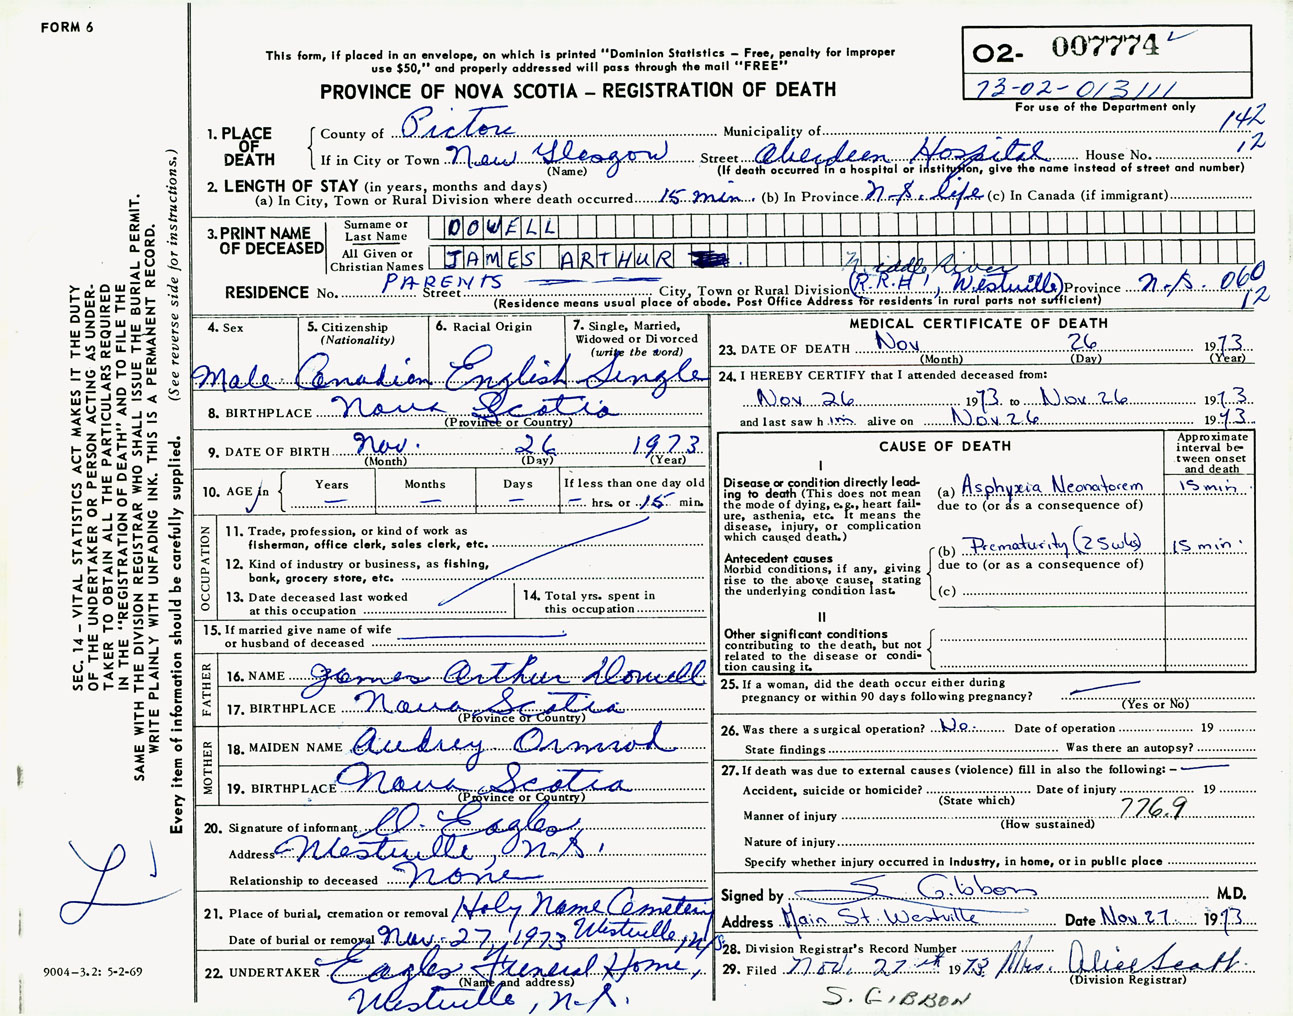 FORM 6
This form, if placed in an envelope, on which is printed "Dominion Statistics – Free, penalty for improper
use $50," and properly addressed will pass through the mail "FREE"
PROVINCE OF NOVA SCOTIA – REGISTRATION OF DEATH
02- 007774
73-02-013111
For use of the Department only
142
12
1. PLACE OF DEATH
County of Pictou Municipality of
If in City or Town New Glasgow Street Aberdeen Hospital House No.
(Name) (If death occurred in a hospital or institution, give the name instead of street and number)
2. LENGTH OF STAY (in years, months and days)
(a) In City, Town or Rural Division where death occurred 15 min. (b) In Province N.S. life (c) In Canada (if immigrant)
3. PRINT NAME OF DECEASED
Surname or Last Name DOWELL
All Given or Christian Names JAMES ARTHUR
Middle River
RESIDENCE No. PARENTS Street City, Town or Rural Division (R.R.#1, Westville) Province N.S. 060
12
(Residence means usual place of abode. Post Office Address for residents in rural parts not sufficient)
4. Sex
Male
5. Citizenship (Nationality)
Canadian
6. Racial Origin
English
7. Single, Married, Widowed or Divorced (write the word)
Single
8. BIRTHPLACE Nova Scotia
(Province or Country)
9. DATE OF BIRTH Nov. 26 1973
(Month) (Day) (Year)
10. AGE in
Years – Months – Days – If less than one day old
– hrs. or 15 min.
OCCUPATION
11. Trade, profession, or kind of work as
fisherman, office clerk, sales clerk, etc.
12. Kind of industry or business, as fishing,
bank, grocery store, etc.
13. Date deceased last worked
at this occupation
14. Total yrs. spent in
this occupation
15. If married give name of wife
or husband of deceased
FATHER
16. NAME James Arthur Dowell
17. BIRTHPLACE Nova Scotia
(Province or Country)
MOTHER
18. MAIDEN NAME Audrey Ormrod
19. BIRTHPLACE Nova Scotia
(Province or Country)
20. Signature of informant D. Eagles,
Address Westville, N.S.
Relationship to deceased None
21. Place of burial, cremation or removal Holy Name Cemetery
Westville, N.S.
Date of burial or removal Nov. 27, 1973
22. UNDERTAKER Eagles Funeral Home,
(Name and address)
Westville, N.S.
MEDICAL CERTIFICATE OF DEATH
23. DATE OF DEATH Nov 26 1973
(Month) (Day) (Year)
24. I HEREBY CERTIFY that I attended deceased from:
Nov 26 1973 to Nov. 26 1973
and last saw him alive on Nov. 26 1973
CAUSE OF DEATH
Approximate interval between onset and death
I
Disease or condition directly leading to death (This does not mean the mode of dying, e.g., heart failure, asthenia, etc. It means the disease, injury, or complication which caused death.)
(a) Asphyxia Neonatorem 15 min.
due to (or as a consequence of)
Antecedent causes
Morbid conditions, if any, giving rise to the above cause, stating the underlying condition last.
(b) Prematurity (25wks) 15 min.
due to (or as a consequence of)
(c)
II
Other significant conditions
contributing to the death, but not related to the disease or condition causing it.
25. If a woman, did the death occur either during
pregnancy or within 90 days following pregnancy?
(Yes or No)
26. Was there a surgical operation? No. Date of operation 19
State findings Was there an autopsy?
27. If death was due to external causes (violence) fill in also the following: –
Accident, suicide or homicide? Date of injury 19
(State which)
776.9
Manner of injury
(How sustained)
Nature of injury
Specify whether injury occurred in industry, in home, or in public place
Signed by S. Gibbon M.D.
Address Main St. Westville Date Nov. 27 1973
28. Division Registrar's Record Number
29. Filed Nov. 27 st 1973 Mrs. Alice Scott
(Division Registrar)
S. GIBBON
SEC. 14 – VITAL STATISTICS ACT MAKES IT THE DUTY
OF THE UNDERTAKER OR PERSON ACTING AS UNDER-
TAKER TO OBTAIN ALL THE PARTICULARS REQUIRED
IN THE "REGISTRATION OF DEATH" AND TO FILE THE
SAME WITH THE DIVISION REGISTRAR WHO SHALL ISSUE THE BURIAL PERMIT.
WRITE PLAINLY WITH UNFADING INK. THIS IS A PERMANENT RECORD.
Every item of information should be carefully supplied. (See reverse side for instructions.)
9004–3.2: 5-2-69